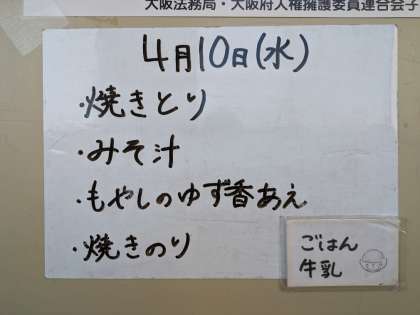 大阪法務局・大阪府人権擁護委員連合会子
4月10日(水)
・焼きとり
・みそ汁
・もやしのゆず香あえ
・焼きのり
ごはん
牛乳